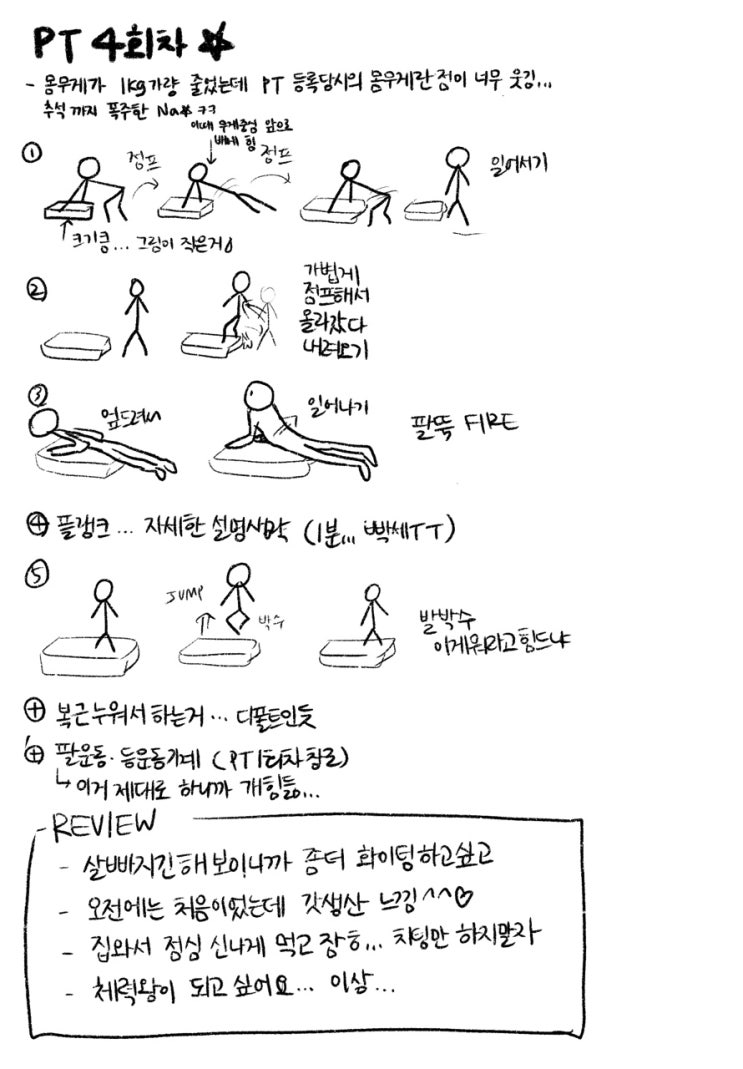 PT 4회차 ☆
- 몸무게가 1kg가량 줄었는데 PT 등록당시의 몸무게란 점이 너무 웃김...
추석까지 폭주한 Na☆ ㅋㅋ
① 점프
이때 무게중심 앞으로
배에 힘
점프
일어서기
크기큼... 그림이 작은거임
②
가볍게
점프해서
올라갔다
내려오기
③ 엎드려서
일어나기
팔뚝 FIRE
④ 플랭크... 자세한 설명생략 (1분... 빡세TT)
⑤
JUMP
박수
발박수
이게뭐라고힘드냐
⊕ 복근누워서하는거... 디폴트인듯
⊕ 팔운동·등운동기계 (PT1회차참조)
↳ 이거 제대로 하니까 개힘듦...
- REVIEW
- 살빠지긴해보이니까 좀더 화이팅하고싶고
- 오전에는 처음이었는데 갓생산 느낌^^♡
- 집와서 점심 신나게 먹고 잠ㅎ... 치팅만 하지말자
- 체력왕이 되고싶어요... 이상...